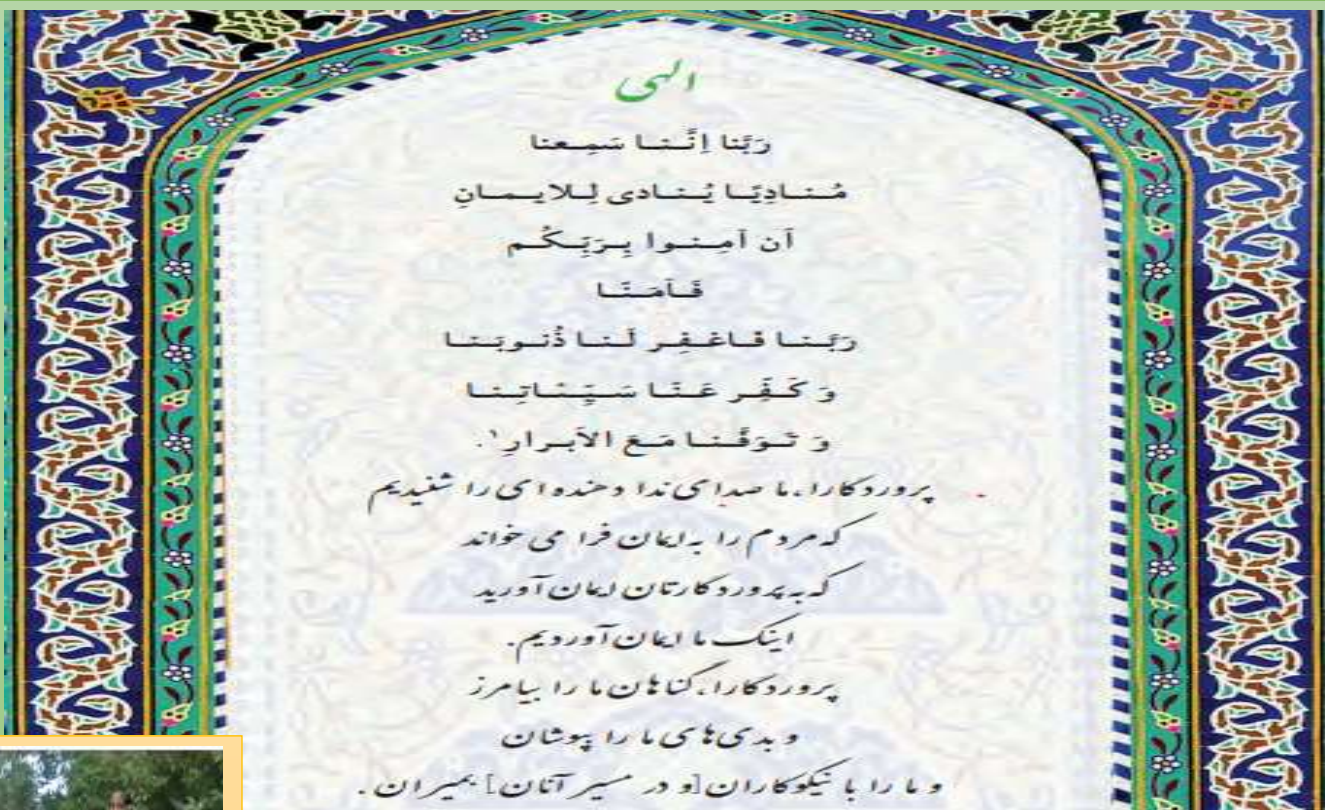 الهی
رَبَّنا اِنَّنا سَمِعنا
مُنادِیًا یُنادی لِلایمانِ
اَن آمِنوا بِرَبِّکُم
فَآمَنّا
رَبَّنا فَاغفِر لَنا ذُنوبَنا
وَ کَفِّر عَنّا سَیِّئاتِنا
وَ تَوَفَّنا مَعَ الاَبرارِ۱.
پروردگارا، ما صدای ندا دهنده ای را شنیدیم
که مردم را به ایمان فرا می خواند
که به پروردگارتان ایمان آورید
اینک ما ایمان آوردیم.
پروردگارا، گناهان ما را بیامرز
و بدی های ما را بپوشان
و ما را با نیکوکاران [و در مسیر آنان] بمیران.